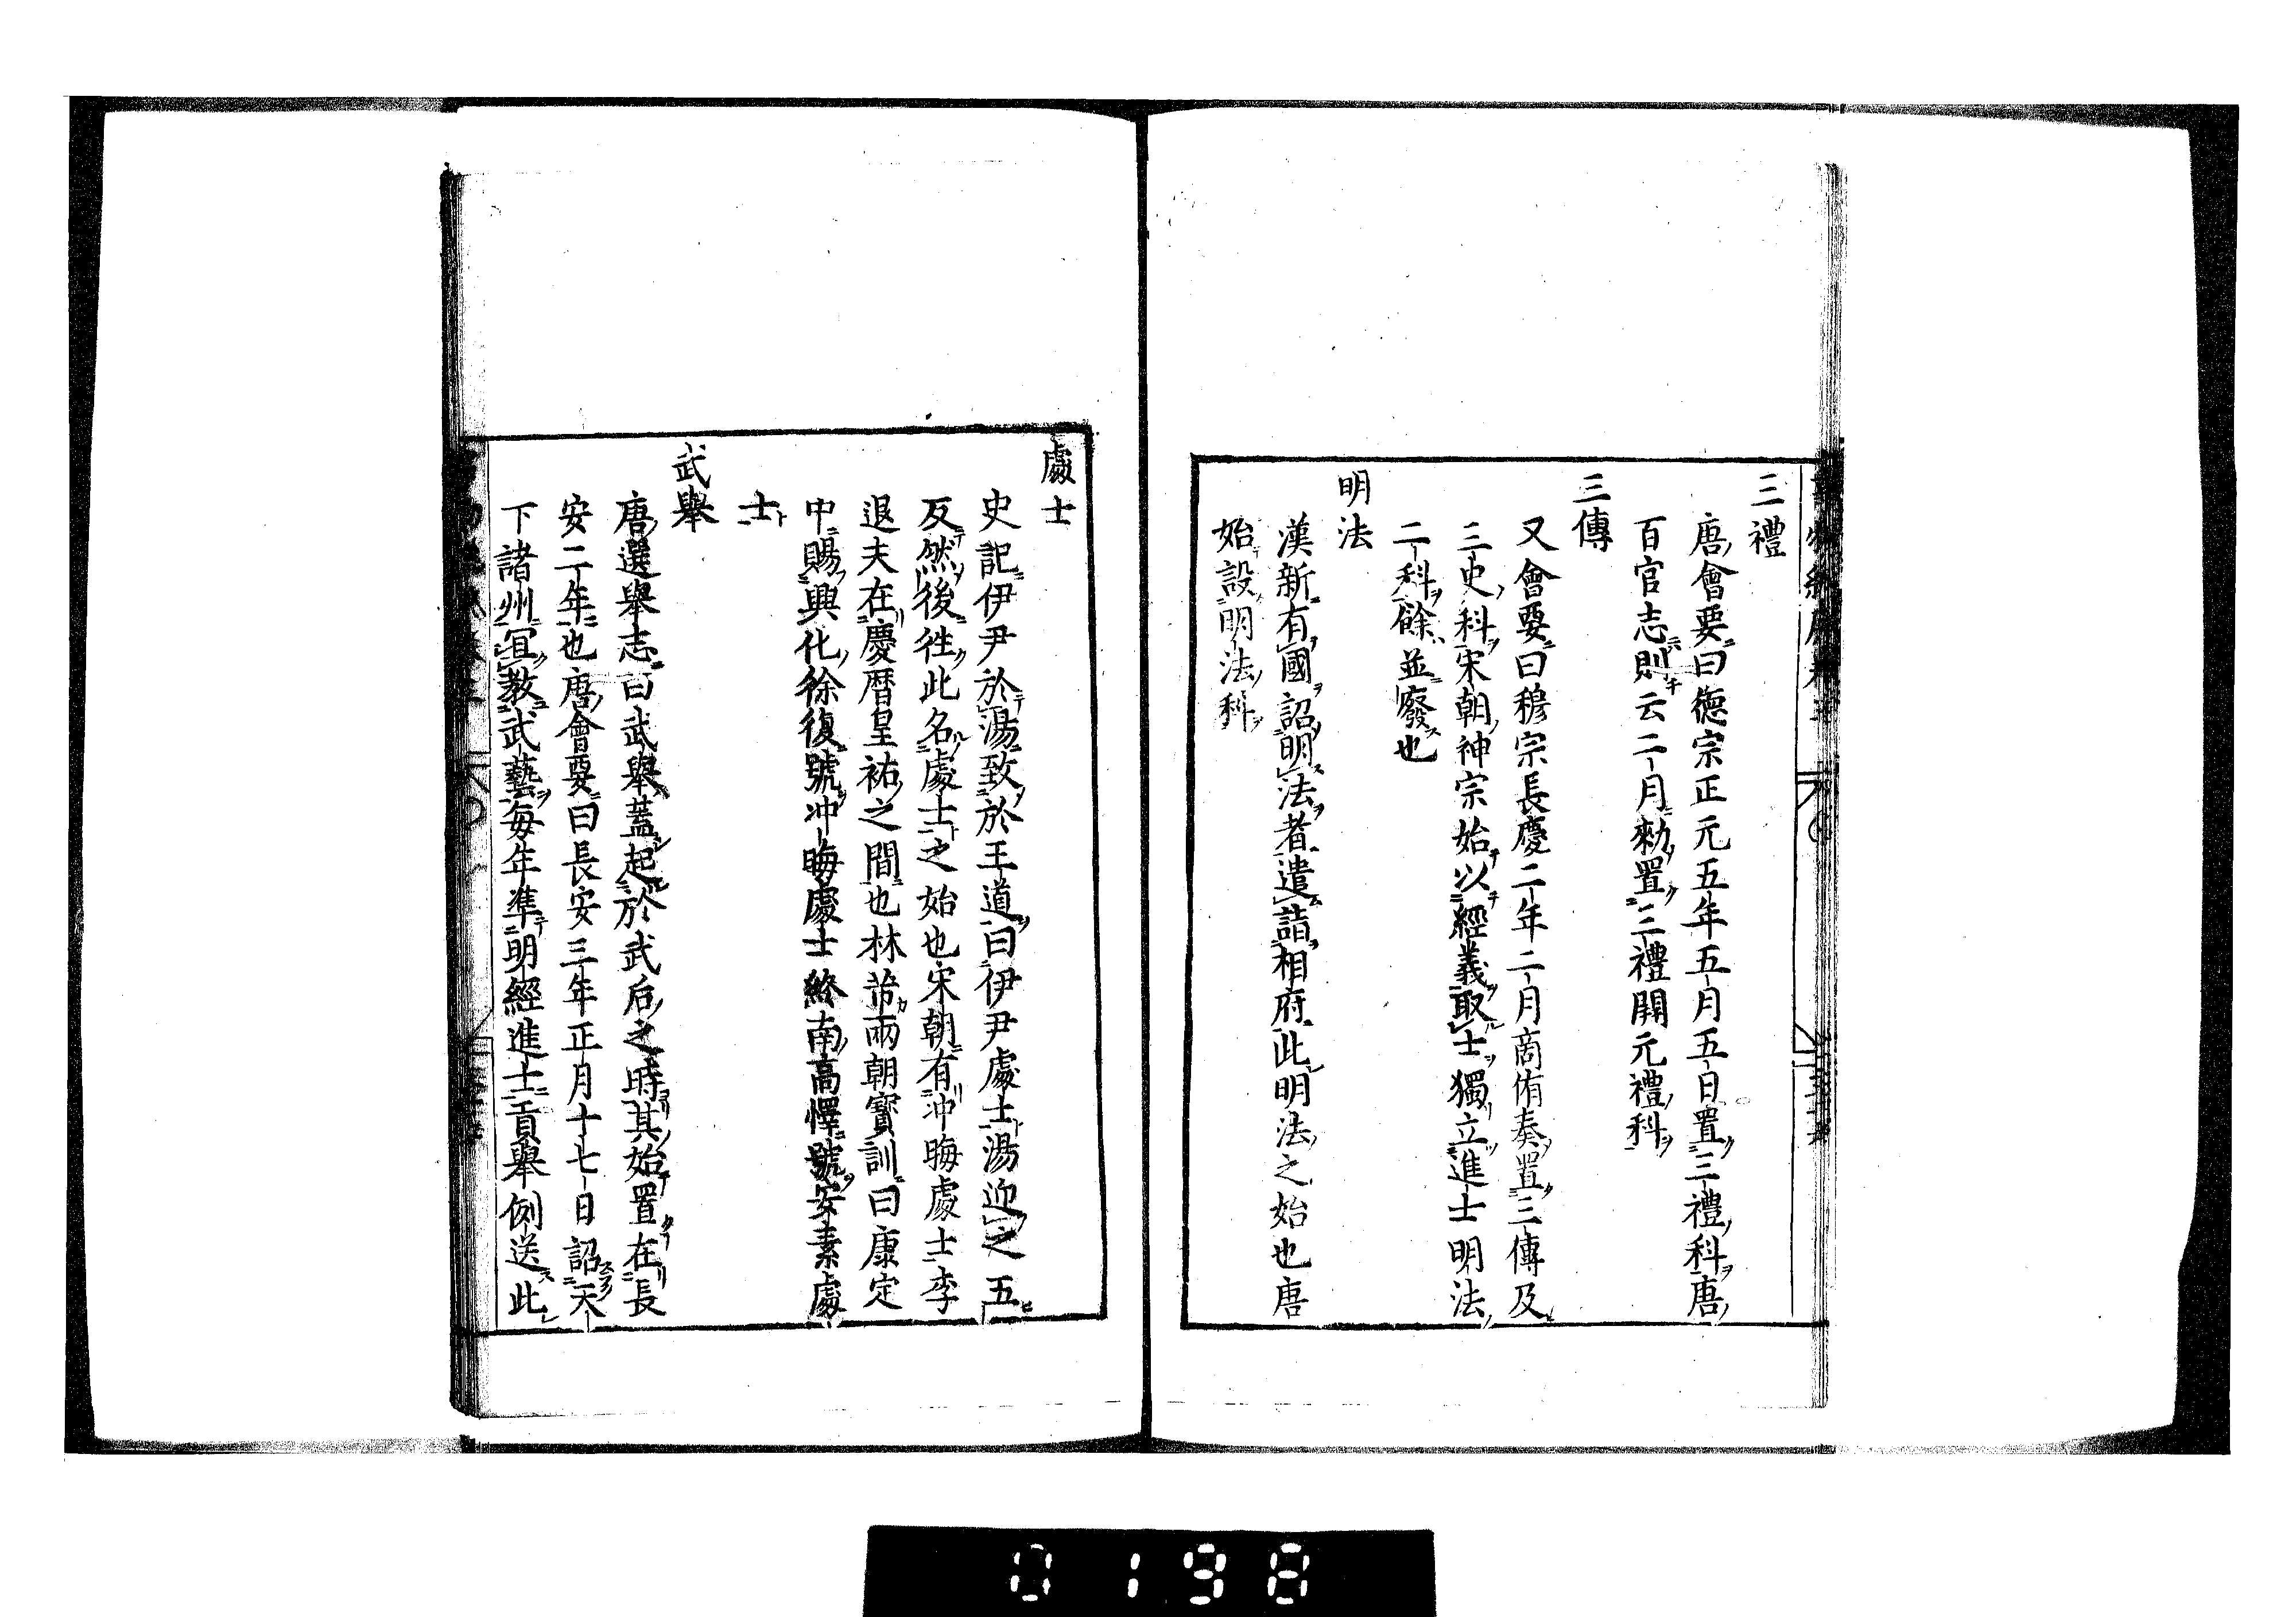 三禮
唐會要曰德宗正元五年五月五日置三禮科唐
百官志則云二月勑置三禮開元禮科
三傳
又會要曰穆宗長慶二年二月商侑奏置三傳及
三史科宋朝神宗始以經義取士獨立進士明法
二科餘並廢也
明法
漢新有國詔明法者遣詣相府此明法之始也唐
始設明法科
處士
史記伊尹於湯致於王道曰伊尹處士湯迎之五
反然後徃此名處士之始也宋朝有冲晦處士李
退夫在慶曆皇祐之間也林芾兩朝寳訓曰康定
中賜興化徐復號冲晦處士終南高懌號安素處
士
武舉
唐選舉志曰武舉蓋起於武后之時其始置在長
安二年也唐會要曰長安三年正月十七日詔天
下諸州冝教武藝每年準明經進士貢舉例送此
0198